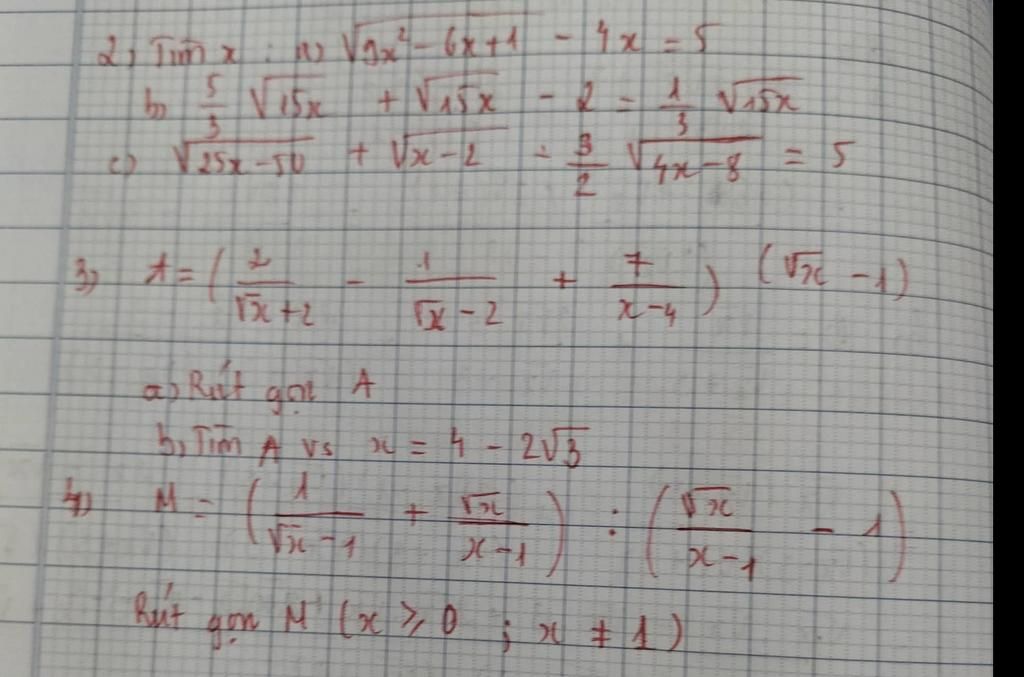 2) Tìm x : a) √(9x² - 6x + 1) - 4x = 5
b) 5/3 √(15x) + √(15x) - 2 = 1/3 √(15x)
c) √(25x - 50) + √(x - 2) - 3/2 √(4x - 8) = 5
3) A = (2/(√x + 2) - 1/(√x - 2) + 7/(x - 4)) (√x - 1)
a) Rút gọn A
b) Tìm A vs x = 4 - 2√3
4) M = (1/(√x - 1) + √x/(x - 1)) : (√x/(x - 1) - 1)
Rút gọn M (x ⩾ 0 ; x ≠ 1)